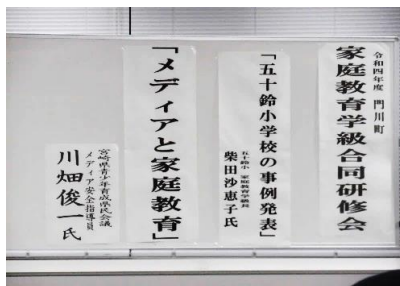 令和四年度 門川町
家庭教育学級合同研修会
「五十鈴小学校の事例発表」
五十鈴小 家庭教育学級長
柴田沙恵子氏
「メディアと家庭教育」
宮崎県青少年育成県民会議
メディア安全指導員
川畑俊一氏